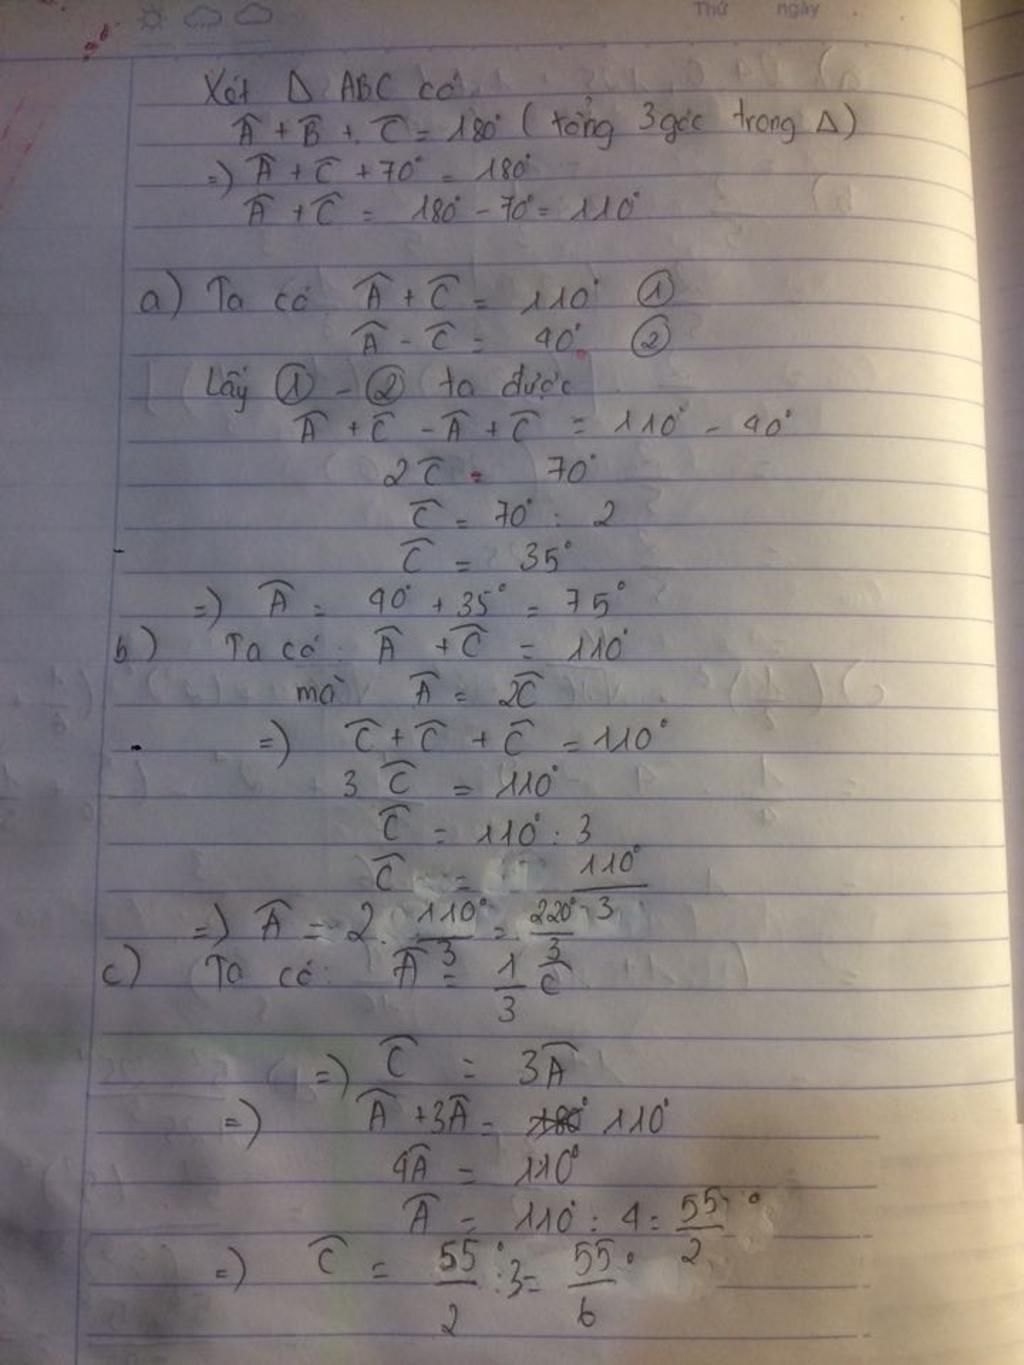 Thứ ngày
Xét Δ ABC có
Â + B̂ + Ĉ = 180° ( tổng 3 góc trong Δ)
=) Â + Ĉ + 70° = 180°
Â + Ĉ = 180° - 70° = 110°
a) Ta có Â + Ĉ = 110° ①
Â - Ĉ = 40° ②
Lấy ① - ② ta được
Â + Ĉ - Â + Ĉ = 110° - 40°
2Ĉ = 70°
Ĉ = 70° : 2
Ĉ = 35°
=) Â = 40° + 35° = 75°
b) Ta có: Â + Ĉ = 110°
mà Â = 2Ĉ
=) Ĉ + Ĉ + Ĉ = 110°
3 Ĉ = 110°
Ĉ = 110° : 3
Ĉ = 110°/3
=) Â = 2. 110°/3 = 220°/3
c) Ta có: Â = 1/3 Ĉ
=) Ĉ = 3Â
=) Â + 3Â = 180° 110°
4Â = 110°
Â = 110° : 4 = 55°/2
=) Ĉ = 55°/2 : 3 = 55°/6